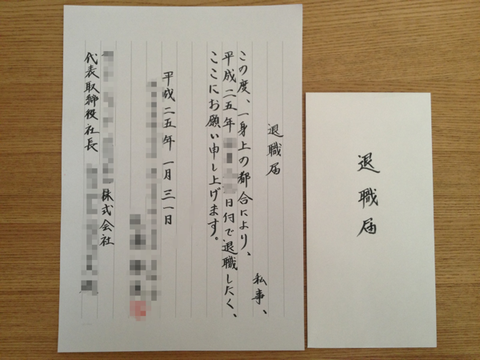 退職届
私事、
この度、一身上の都合により、
平成二五年
日付で退職したく、
ここにお願い申し上げます。
平成二五年 一月三一日
株式会社
代表取締役社長
退職届